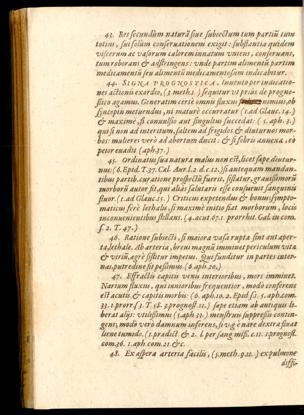 43. Res secundùm naturã siue subiectum tum partiũ tum
totius, sui solùm conseruationem exigit: substantia quidem
viscerum ac vasorum calorem innatum vnitus, conseruant,
tum roborant & adstringens: vnde partim alimentũ partim
medicamentũ seu alimentũ medicamentosum indicabitur.
44. SIGNA PROGNOSTICA. Inuento per indicatio-
nes actionis exordio, (3. meth.) sequitur vt prius de progno-
stico agamus. Generatim certè omni fluxui nimio, ob
syncopen metuendus, ni maturè occurratur (1. ad Glauc. 14.)
& maximè, si conuulsio aut singultus succedat: (5. aph. 3.)
qui si non ad interitum, saltem ad frigidos & diuturnos mor-
bos: mulieres verò ad abortum ducit: & si febris annexa, eò
peior euadit (aph. 37.)
45. Ordinatius sua natura malus non est, licet sæpe diutur-
nus: (6. Epid. T. 37. Cal. dur. l. 2. d. c. 12.) si antequam mandan-
tibus partib. curatione prospectũ fuerit, sistatur, grauissimorũ
morborũ autor fit, qui aliàs salutaris esse consueuit sanguinis
fluor. (1. ad Glauc. 15.) Criticus expetendus & bonus: sympto-
maticus ferè lethalis, si maximè initio fiat morborum, locis
inconuenientibus stillans. (4. acut. 67. 1. prorrhit. Gal. in com.
s. 2. T. 47.)
46. Ratione subiecti, si maiora vasa rupta sint aut aper-
ta, lethale. Ab arteria, breui magnũ imminet periculum vita
& viriũ, ægrè sistitur impetus. Qui funditur in partes inter-
nas, putredine fit pessimus (6. aph. 20.)
47. Effractis capitis venis interioribus, mors imminet.
Narium fluxus, qui iunioribus frequentior, modò conferens
est acutis & capitis morbis: (6. aph. 10. 2. Epid. s. 5. aph. com.
liberat aliàs: vtilissimus (5. aph. 33.) menstruis suppressis contin-
gens, modò verò damnum inferens, si vg è nare dextra sinat
48. Ex aspera arteria facilis, (5. meth. 9. 12.) ex pulmone
diffi-